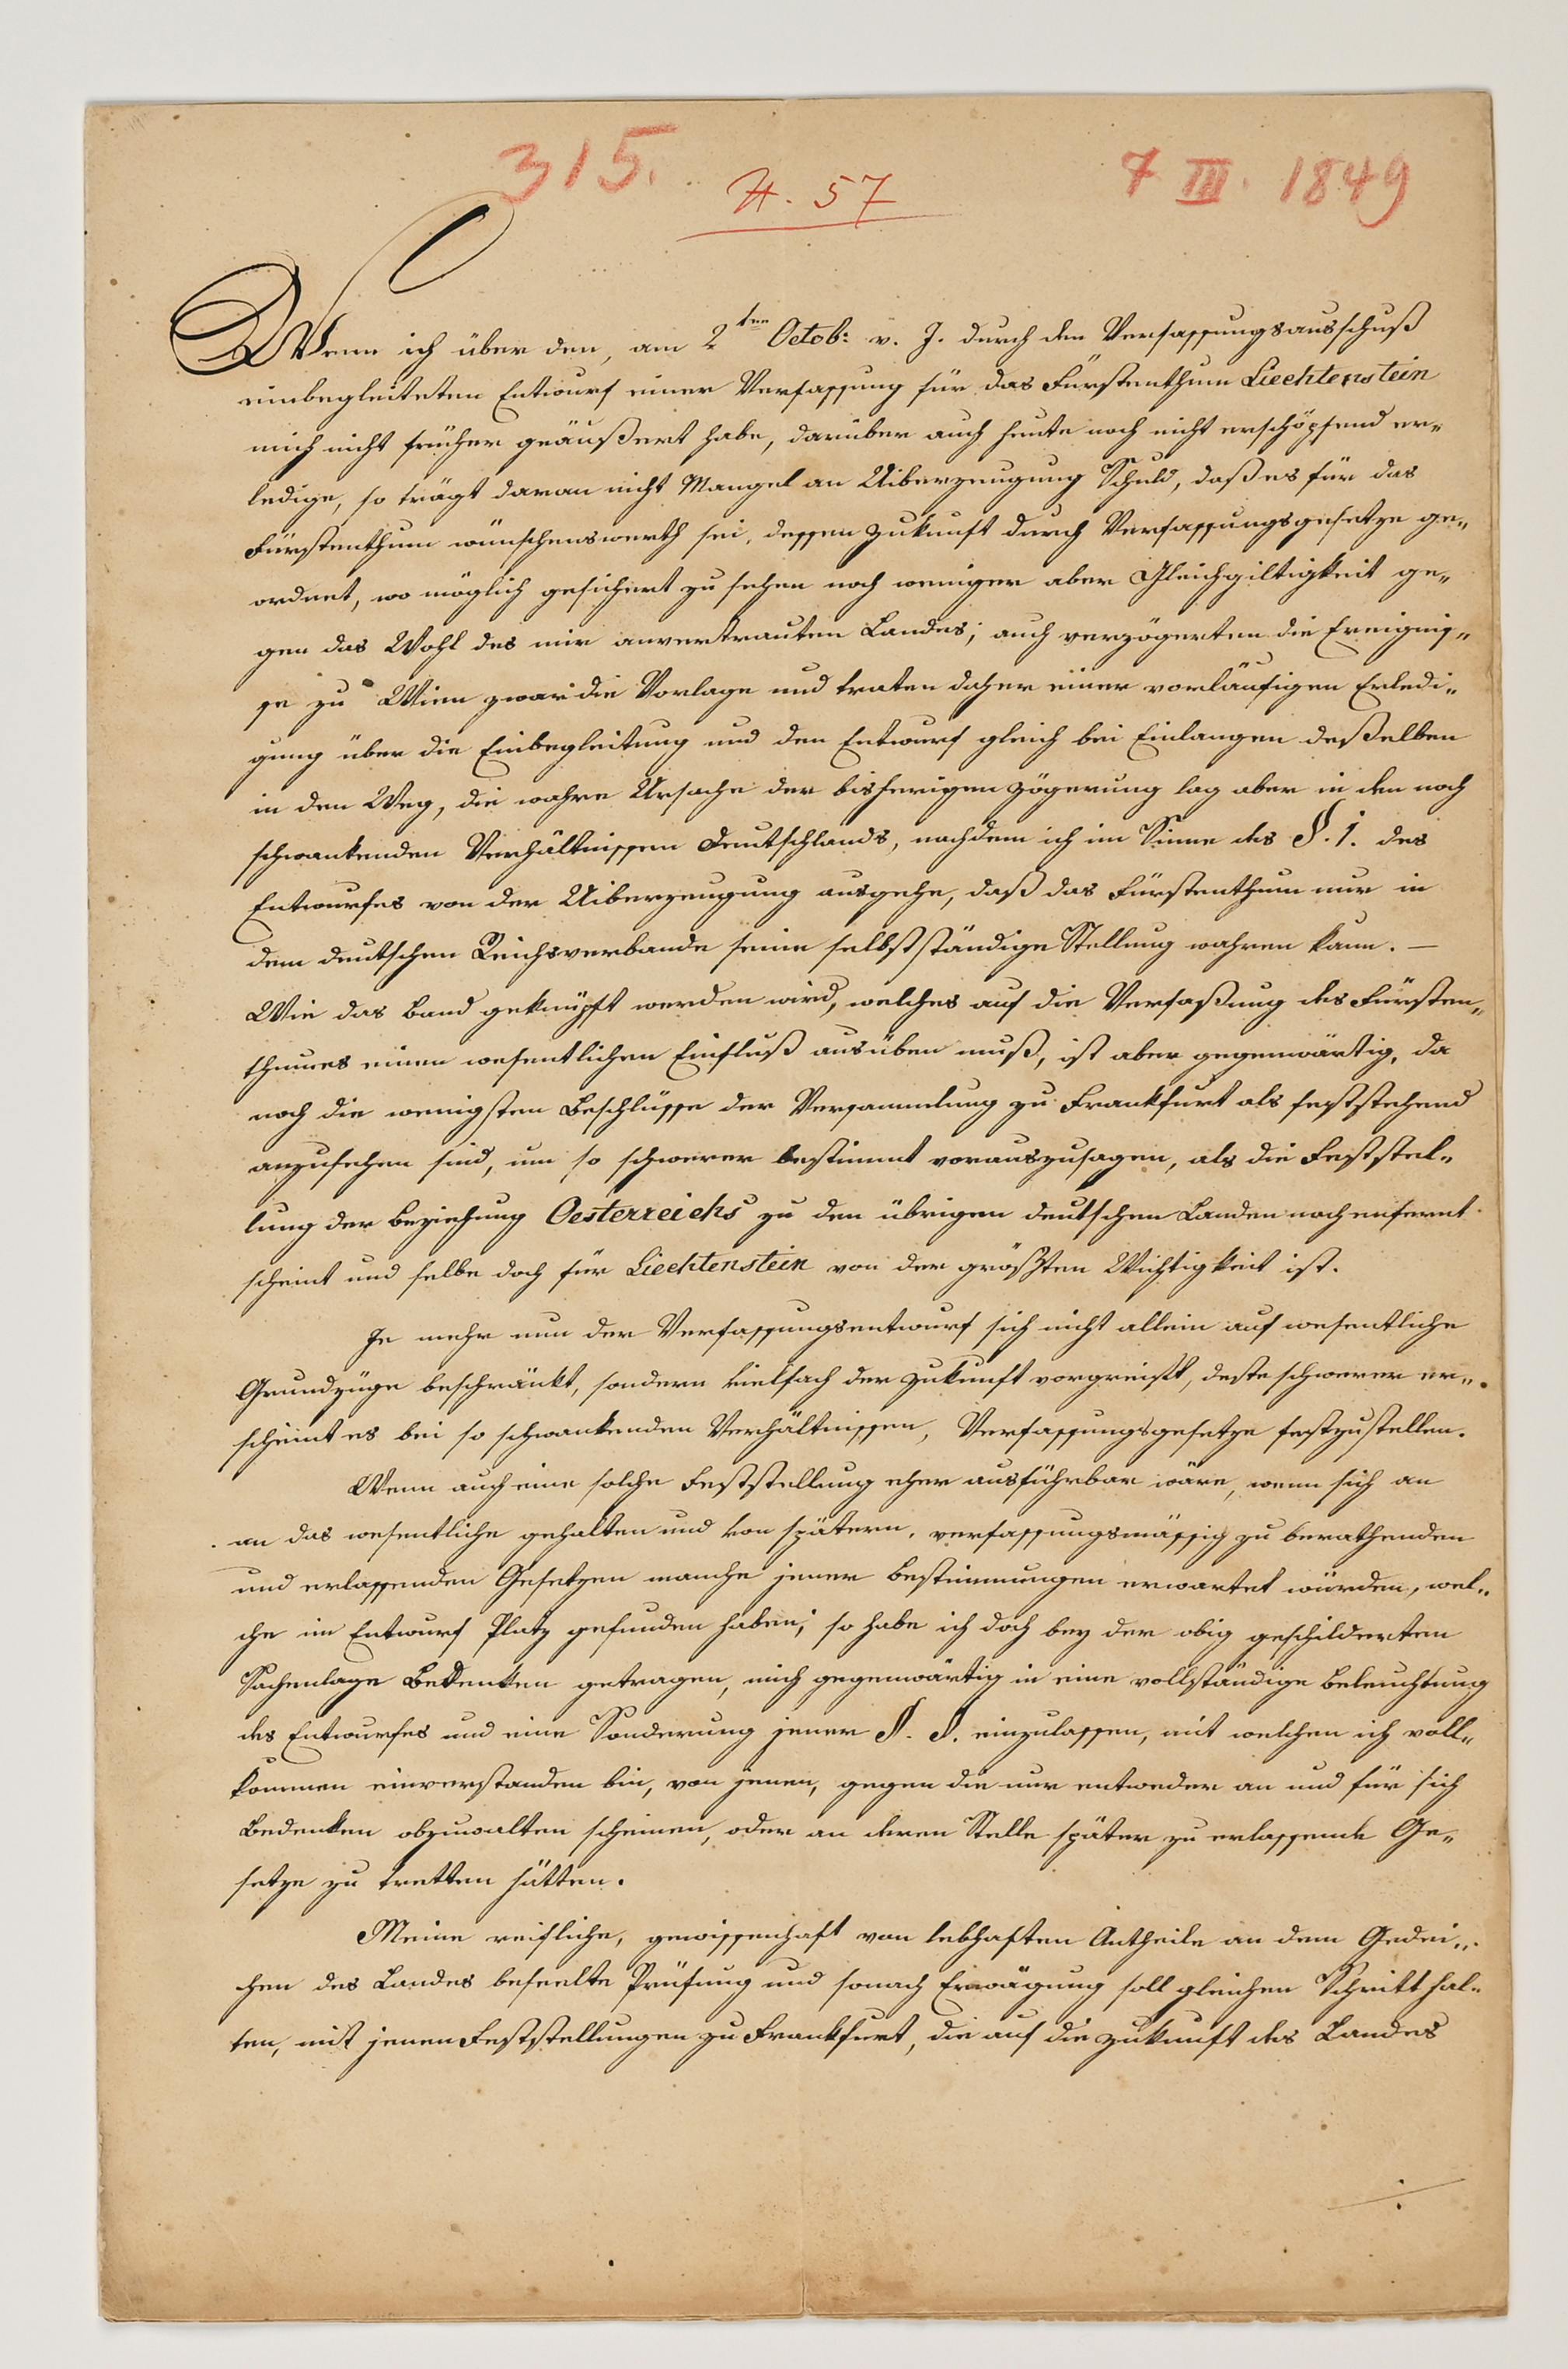 315.
H. 57
7 III. 1849
Wenn ich über den, am 2ten Octob: v. J. durch den Verfassungsausschuß
einbegleiteten Entwurf einer Verfassung für das Fürstenthum Liechtenstein
mich nicht früher geäußert habe, darüber auch heute noch nicht erschöpfend er„
ledige, so trägt daran nicht Mangel an Uiberzeugung Schuld, daß es für das
Fürstenthum wünschenswerth sei, dessen Zukunft durch Verfassungsgesetze ge„
ordnet, wo möglich gesichert zu sehen noch weniger aber Gleichgiltigkeit ge„
gen das Wohl des mir anvertrauten Landes; auch verzögerten die Ereignis„
se zu Wien zwar die Vorlage und traten daher einer vorläufigen Erledi„
gung über die Einbegleitung und den Entwurf gleich bei Einlangen deßelben
in den Weg, die wahre Ursache der bisherigen Zögerung lag aber in den noch
schwankenden Verhältnissen Deutschlands, nachdem ich im Sinne des §. 1. des
Entwurfes von der Uiberzeugung ausgehe, daß das Fürstenthum nur in
dem deutschen Reichsverbande seine selbstständige Stellung wahren kann. —
Wie das Band geknüpft werden wird, welches auf die Verfaßung des Fürsten„
thumes einen wesentlichen Einfluß ausüben muß, ist aber gegenwärtig, da
noch die wenigsten Beschlüsse der Versammlung zu Frankfurt als feststehend
anzusehen sind, um so schwerer bestimmt vorauszusagen, als die Feststel„
lung der Beziehung Oesterreichs zu den übrigen deutschen Landen noch enfernt
scheint und selbe doch für Liechtenstein von der größten Wichtigkeit ist.
Je mehr nun der Verfassungsentwurf sich nicht allein auf wesentliche
Grundzüge beschränkt, sondern vielfach der Zukunft vorgreift, desto schwerer er„
scheint es bei so schwankenden Verhältnissen, Verfassungsgesetze festzustellen.
Wenn auch eine solche Feststellung eher ausführbar wäre, wenn sich an
an das wesentliche gehalten und von spätern, verfassungsmässig zu berathenden
und erlassenden Gesetzen manche jener Bestimmungen erwartet würden, wel„
che im Entwurf Platz gefunden haben; so habe ich doch bey der obig geschilderten
Sachenlage Bedenken getragen, mich gegenwärtig in eine vollständige Beleuchtung
des Entwurfes und eine Sonderung jener §. §. einzulassen, mit welchen ich voll„
kommen einverstanden bin, von jenen, gegen die nur entweder an und für sich
Bedenken obzuwalten scheinen, oder an deren Stelle später zu erlassende Ge„
setze zu tretten hätten.
Meine reifliche, gewissenhaft von lebhaften Antheile an dem Gedei„
hen des Landes beseelte Prüfung und sonach Erwägung soll gleichen Schritt hal„
ten, mit jenen Feststellungen zu Frankfurt, die auf die Zukunft des Landes